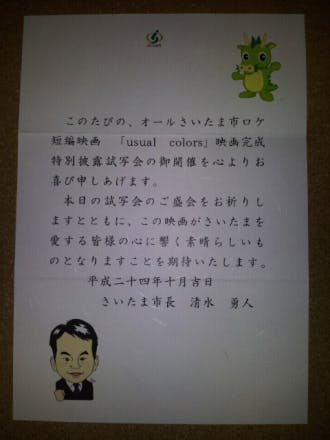 このたびの、オールさいたま市ロケ
短編映画　「usual　colors」映画完成
特別披露試写会の御開催を心よりお
喜び申しあげます。
本日の試写会のご盛会をお祈りし
ますとともに、この映画がさいたまを
愛する皆様の心に響く素晴らしいも
のとなりますことを期待いたします。
平成二十四年十月吉日
さいたま市長　清水　勇人